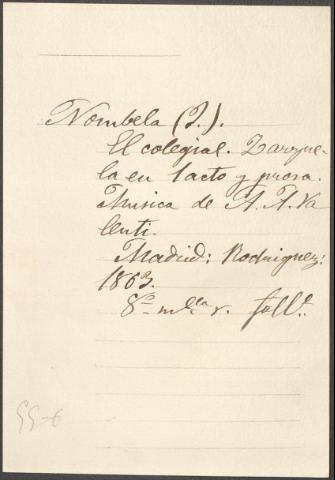 Nombela (J.).
El colegial. Zarzue-
la en 1 acto y prosa.
Musica de A. A. Va
lenti.
Madrid: Rodriguez:
1863.
8º m.lla r. foll.º
55-6